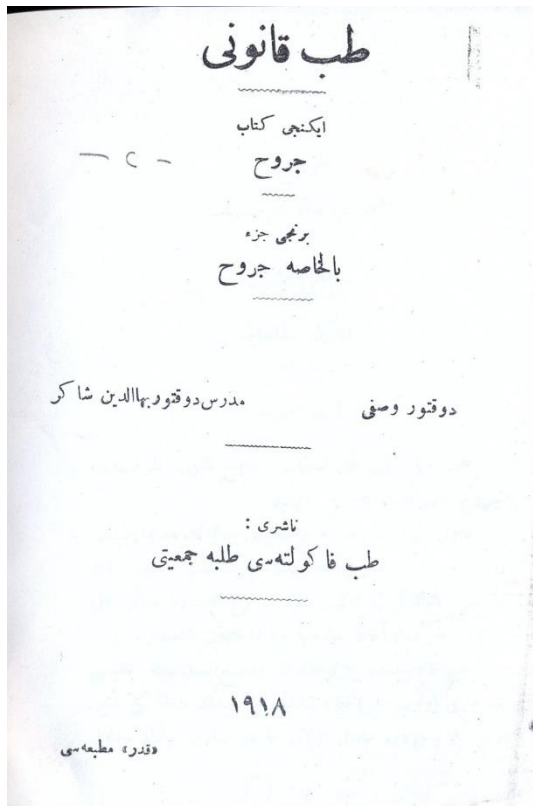 طب قانونی
ایکنجی کتاب
- ٢ -
جروح
برنجی جزء
بالخاصه جروح
دوقتور وصفی
مدرس دوقتور بهاالدین شاکر
ناشری :
طب فاکولته‌سی طلبه جمعیتی
١٩١٨
«قدر» مطبعه‌سی